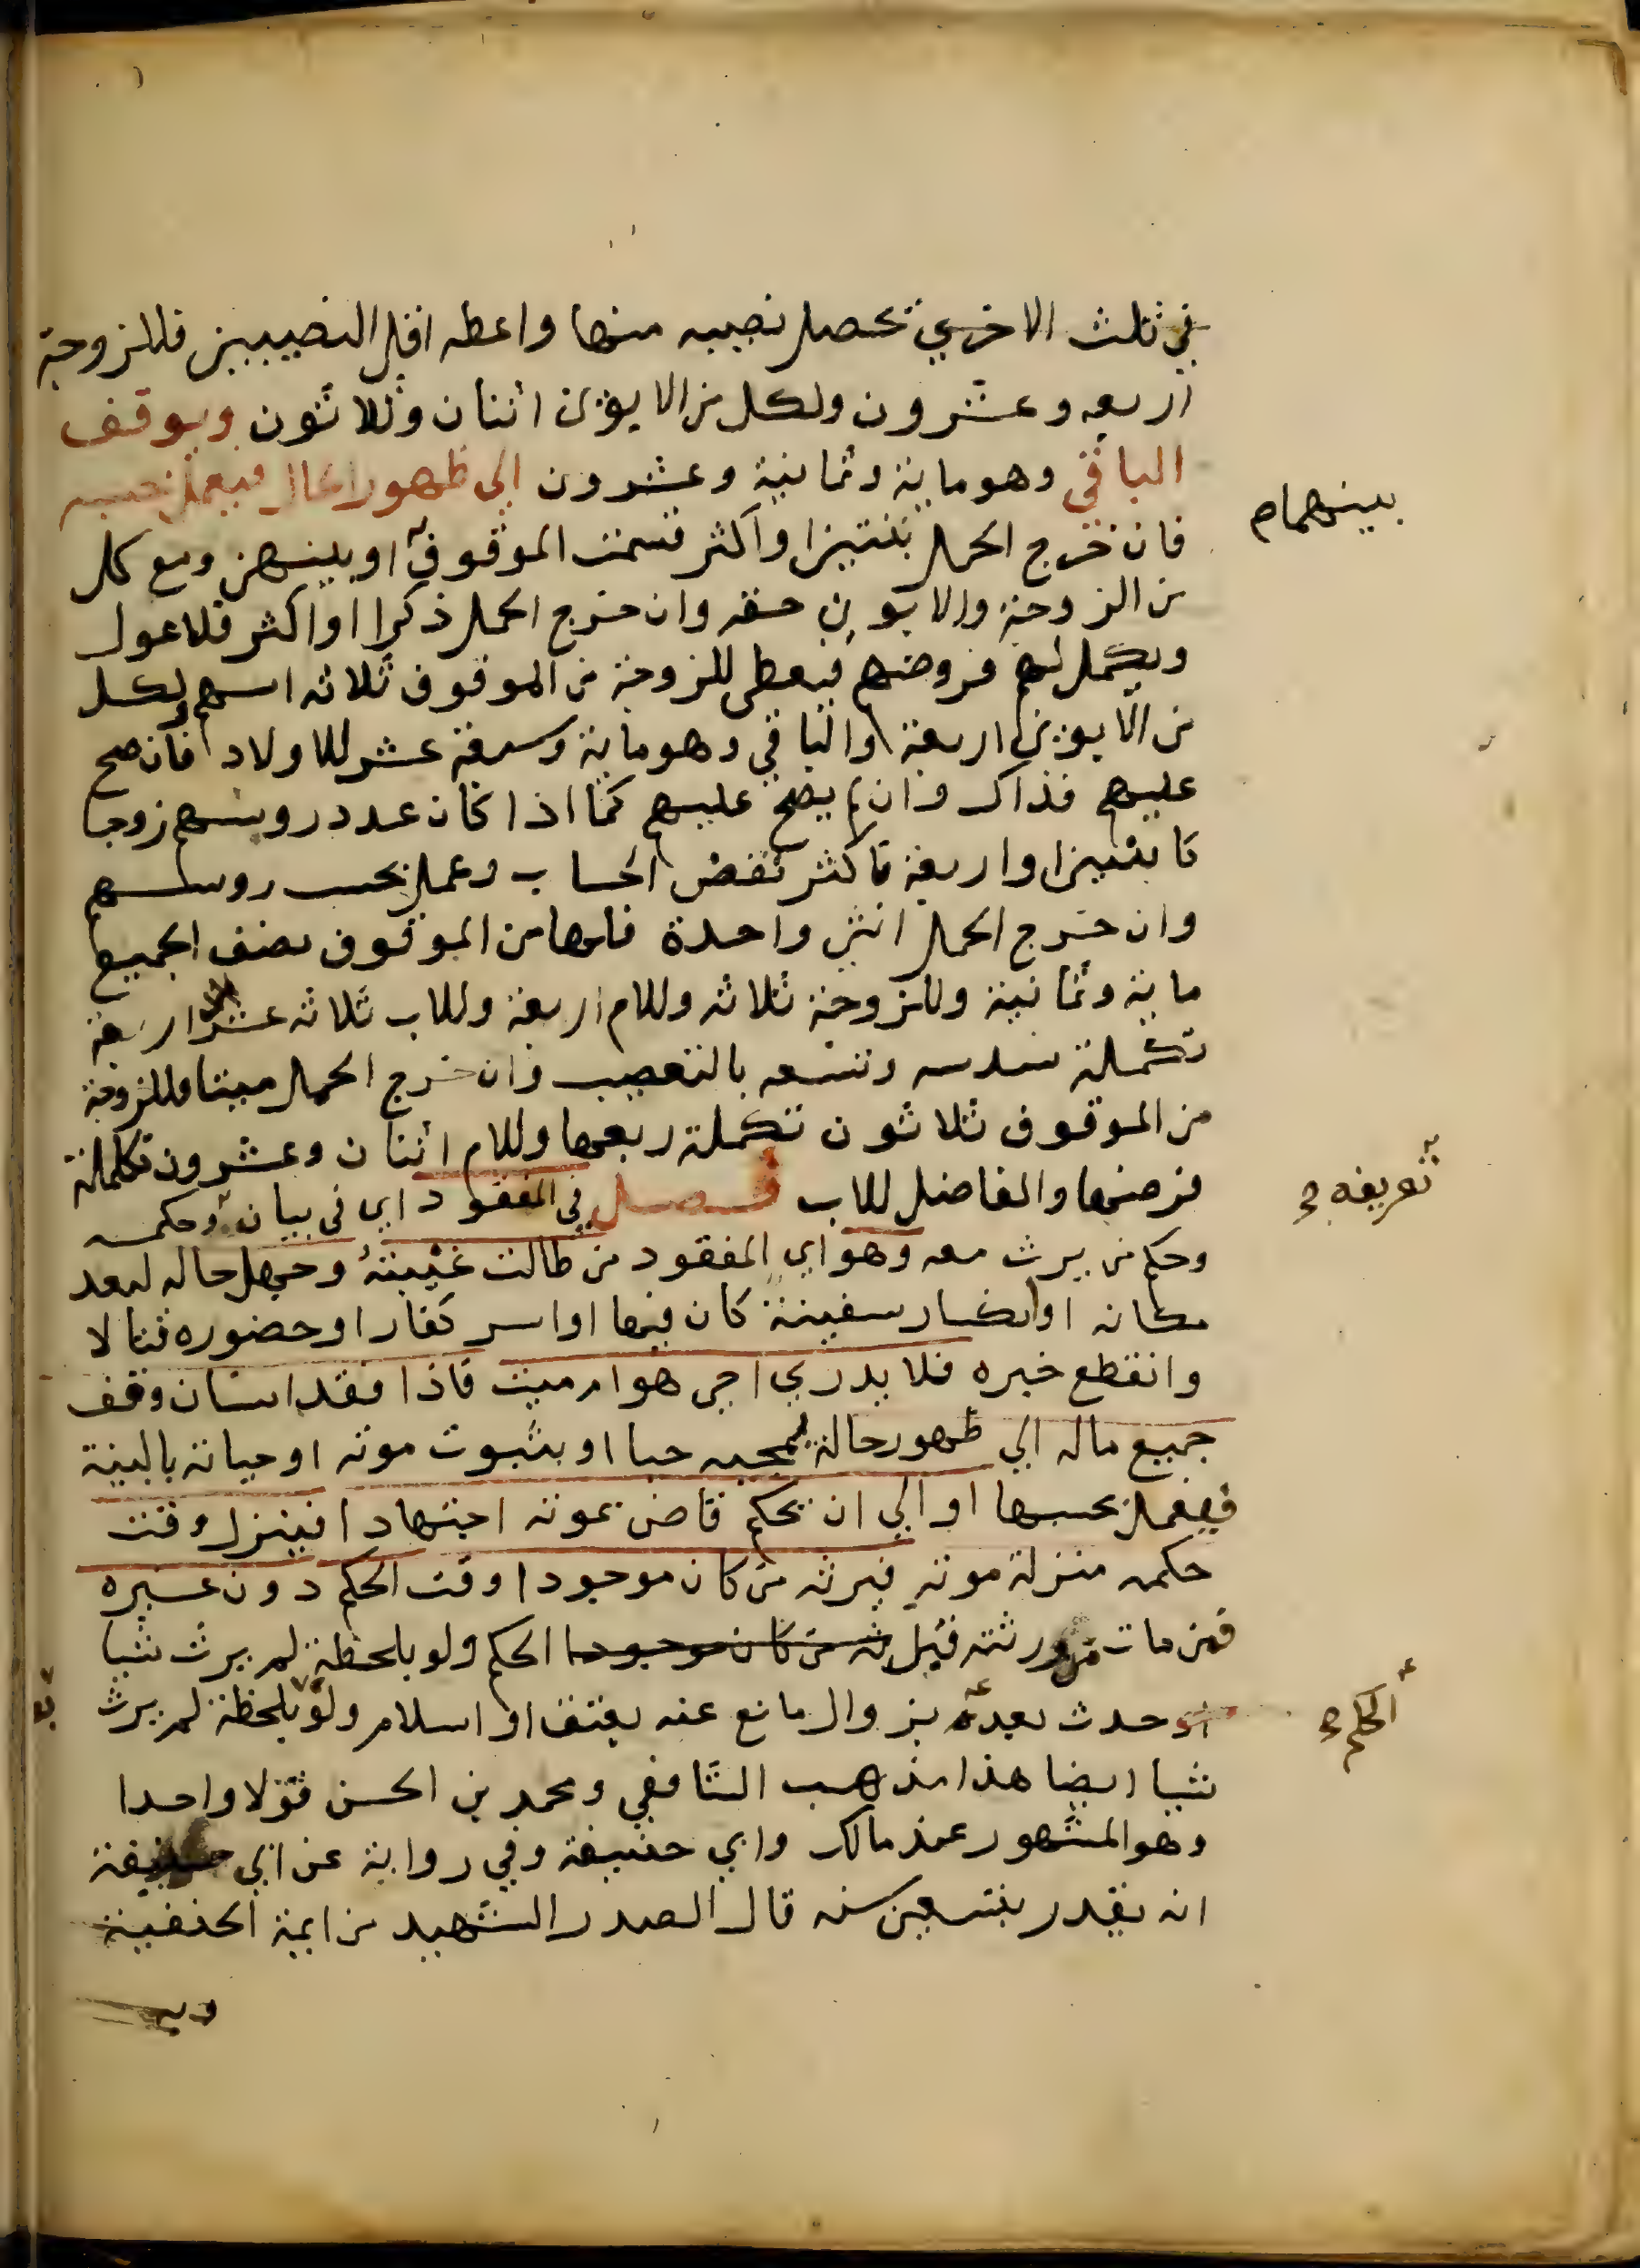 في ثلث الاخري تحصل نصيبه منها واعطه اقل النصيبين فللزوجة
اربعه وعشرون ولكل من الابوين اثنان وثلاثون ويوقف
الباقي وهو ماية وثمانية وعشرون الي ظهور الحال فيعمل بحسبه
فان خرج الحمل بنتين او اكثر قسمت الموقوف او بينهن ومع كل
بينهما م
من الزوجة والابوين حقه وان خرج الحمل ذكرا او اكثر فلا عول
ويكمل لهم فروضهم فيعطي للزوجة من الموقوف ثلاثه اسهم ولكل
من الابوين اربعة والباقي وهو ماية وسبعة عشر للاولاد فان صح
عليهم فذاك وان لم يصح عليهم كما اذا كان عدد روسهم زوجا
كابنين او اربعة فاكثر نقض الحساب وعمل بحسب روسهم
وان خرج الحمل انثي واحدة فلها من الموقوف نصف الجميع
ماية وثمانية وللزوجة ثلاثه وللام اربعة وللاب ثلاثه عشر اربعة
تكملة سدسه وتسعه بالتعصيب وان خرج الحمل ميتا فللزوجة
من الموقوف ثلاثون تكملة ربعها وللام اثنان وعشرون تكملة
فرضها والفاضل للاب فصل في المفقود اي في بيان وحكمه
تعريفه
وحكم من يرث معه وهو اي المفقود من طالت غيبته وجهل حاله لبعد
مكانه او انكسار سفينة كان فيها او اسر كفار او حضوره قتالا
وانقطع خبره فلا يدري احي هو ام ميت فاذا فقد انسان وقف
جميع ماله الي ظهور حاله بمجيه حيا او بثبوت موته او حياته بالبينة
فيعمل بحسبها او الي ان يحكم قاض بموته اجتهادا فينزل وقت
حكمه منزلة موته فيرثه من كان موجودا وقت الحكم دون غيره
فمن مات من ورثته قبل ثه من كان موجودا الحكم ولو بلحظة لم يرث شيا
او حدث بعده بزوال مانع عنه بعتق او اسلام ولو بلحظة لم يرث
الحكم
شيا ايضا هذا مذهب الشافعي ومحمد بن الحسن قولا واحدا
وهو المشهور عند مالك وابي حنيفة وفي رواية عن ابي حنيفة
انه يقدر بتسعين سنه قال الصدر الشهيد من ايمة الحنفية
وبه